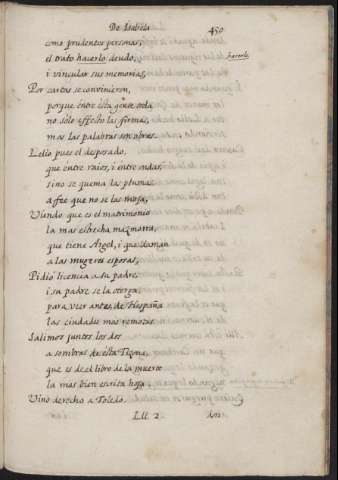 De Isabela
450
como prudentes personas,
el trato hacerlo deudo,
hacerle
i vincular sus memorias,
Por cartas se convinieron,
porque entre esta gente toda
no solo affecto las firmas,
mas las palabras son obras.
Lelio pues el desposado,
que entre raios, i entre ondas
sino se quema las plumas
a fee que no se las moja,
Viendo que es el matrimonio
la mas estrecha mazmorra,
que tiene Argel, i que llaman
a las mugeres esposas,
Pidio licencia a su padre,
i su padre se la otorga,
para ver antes de Hespaña
las ciudades mas famosas.
Salimos juntos los dos
a sombras de esta Tizona,
que es de el libro de la muerte
la mas bien escrita hoja
Vino derecho a Toledo.
Lll 2
don